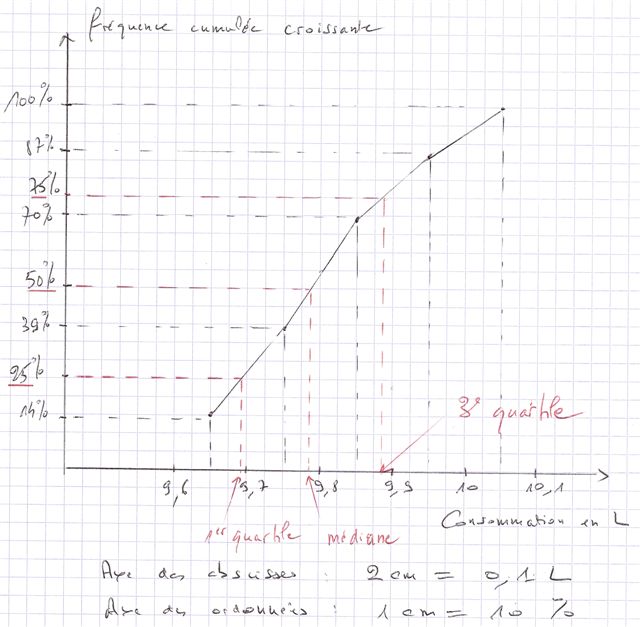 fréquence cumulée croissante
100%
87%
75%
70%
50%
39%
25%
14%
3e quartile
9,6 9,7 9,8 9,9 10 10,1
Consommation en L
1er quartile médiane
Axe des abscisses : 2 cm = 0,1 L
Axe des ordonnées : 1 cm = 10 %